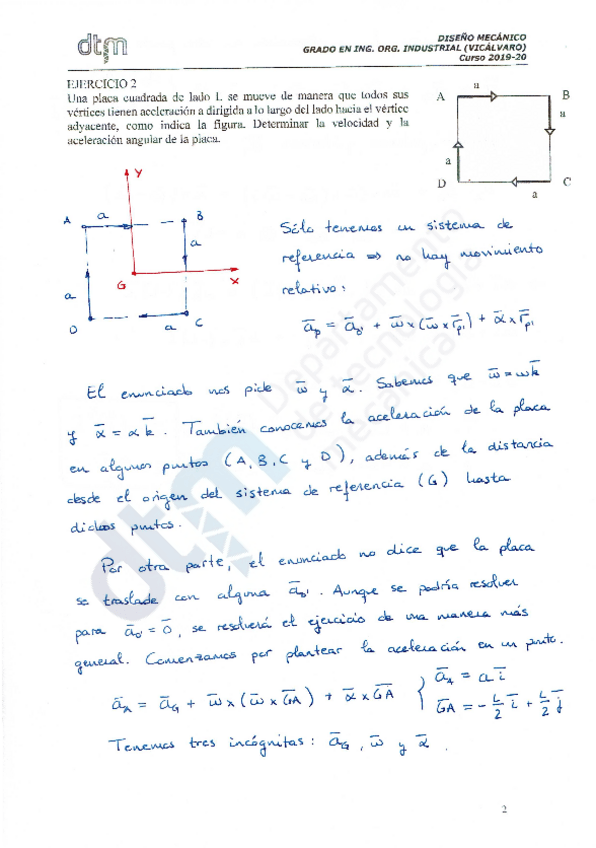 dtm
DISEÑO MECÁNICO
GRADO EN ING. ORG. INDUSTRIAL (VICÁLVARO)
Curso 2019-20
EJERCICIO 2
Una placa cuadrada de lado L se mueve de manera que todos sus
vértices tienen aceleración a dirigida a lo largo del lado hacia el vértice
adyacente, como indica la figura. Determinar la velocidad y la
aceleración angular de la placa.
A a B
a
a
D a C
Y
A a B
a
G X
a
D a C
Sólo tenemos un sistema de
referencia ⇒ no hay movimiento
relativo:
a̅p = a̅o' + ω̅ x (ω̅ x r̅p') + α̅ x r̅p'
El enunciado nos pide ω̅ y α̅. Sabemos que ω̅ = ωk̅
y α̅ = αk̅. También conocemos la aceleración de la placa
en algunos puntos (A, B, C y D), además de la distancia
desde el origen del sistema de referencia (G) hasta
dichos puntos.
Por otra parte, el enunciado no dice que la placa
se traslade con alguna a̅o'. Aunque se podría resolver
para a̅o' = 0̅, se resolverá el ejercicio de una manera más
general. Comenzamos por plantear la aceleración en un punto.
a̅A = a̅G + ω̅ x (ω̅ x G̅A̅) + α̅ x G̅A̅ { a̅A = a i̅
G̅A̅ = - L/2 i̅ + L/2 j̅
Tenemos tres incógnitas: a̅G, ω̅ y α̅.
Departamento
de tecnología
mecánica
dtm
2